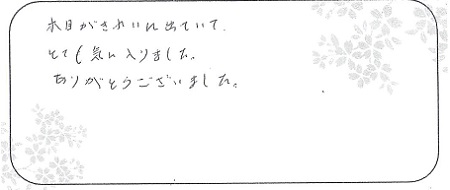 木目がきれいに出ていて、
とても気に入りました。
ありがとうございました。